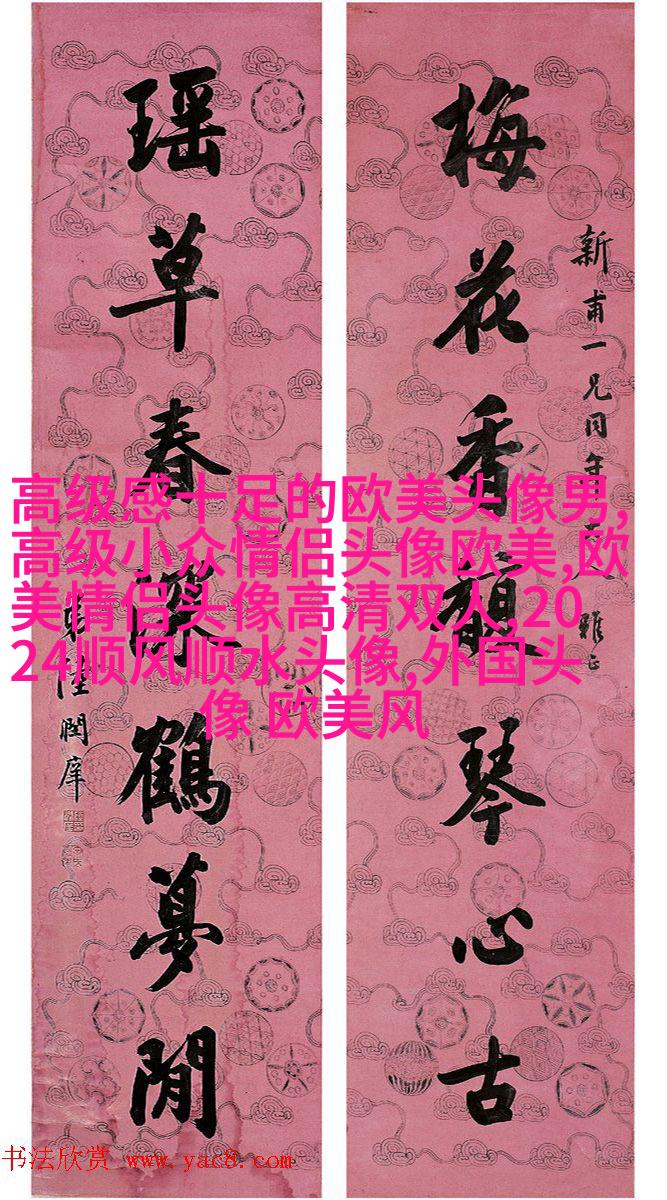 梅花香馥琴心古
新甫一兄同年大人雅正
瑶草春深鶴夢閒
弟陸潤庠
高级感十足的欧美头像男,
高级小众情侣头像欧美,欧
美情侣头像高清双人,20
24顺风顺水头像,外国头
像 欧美风
书法欣赏 www.yac8.com